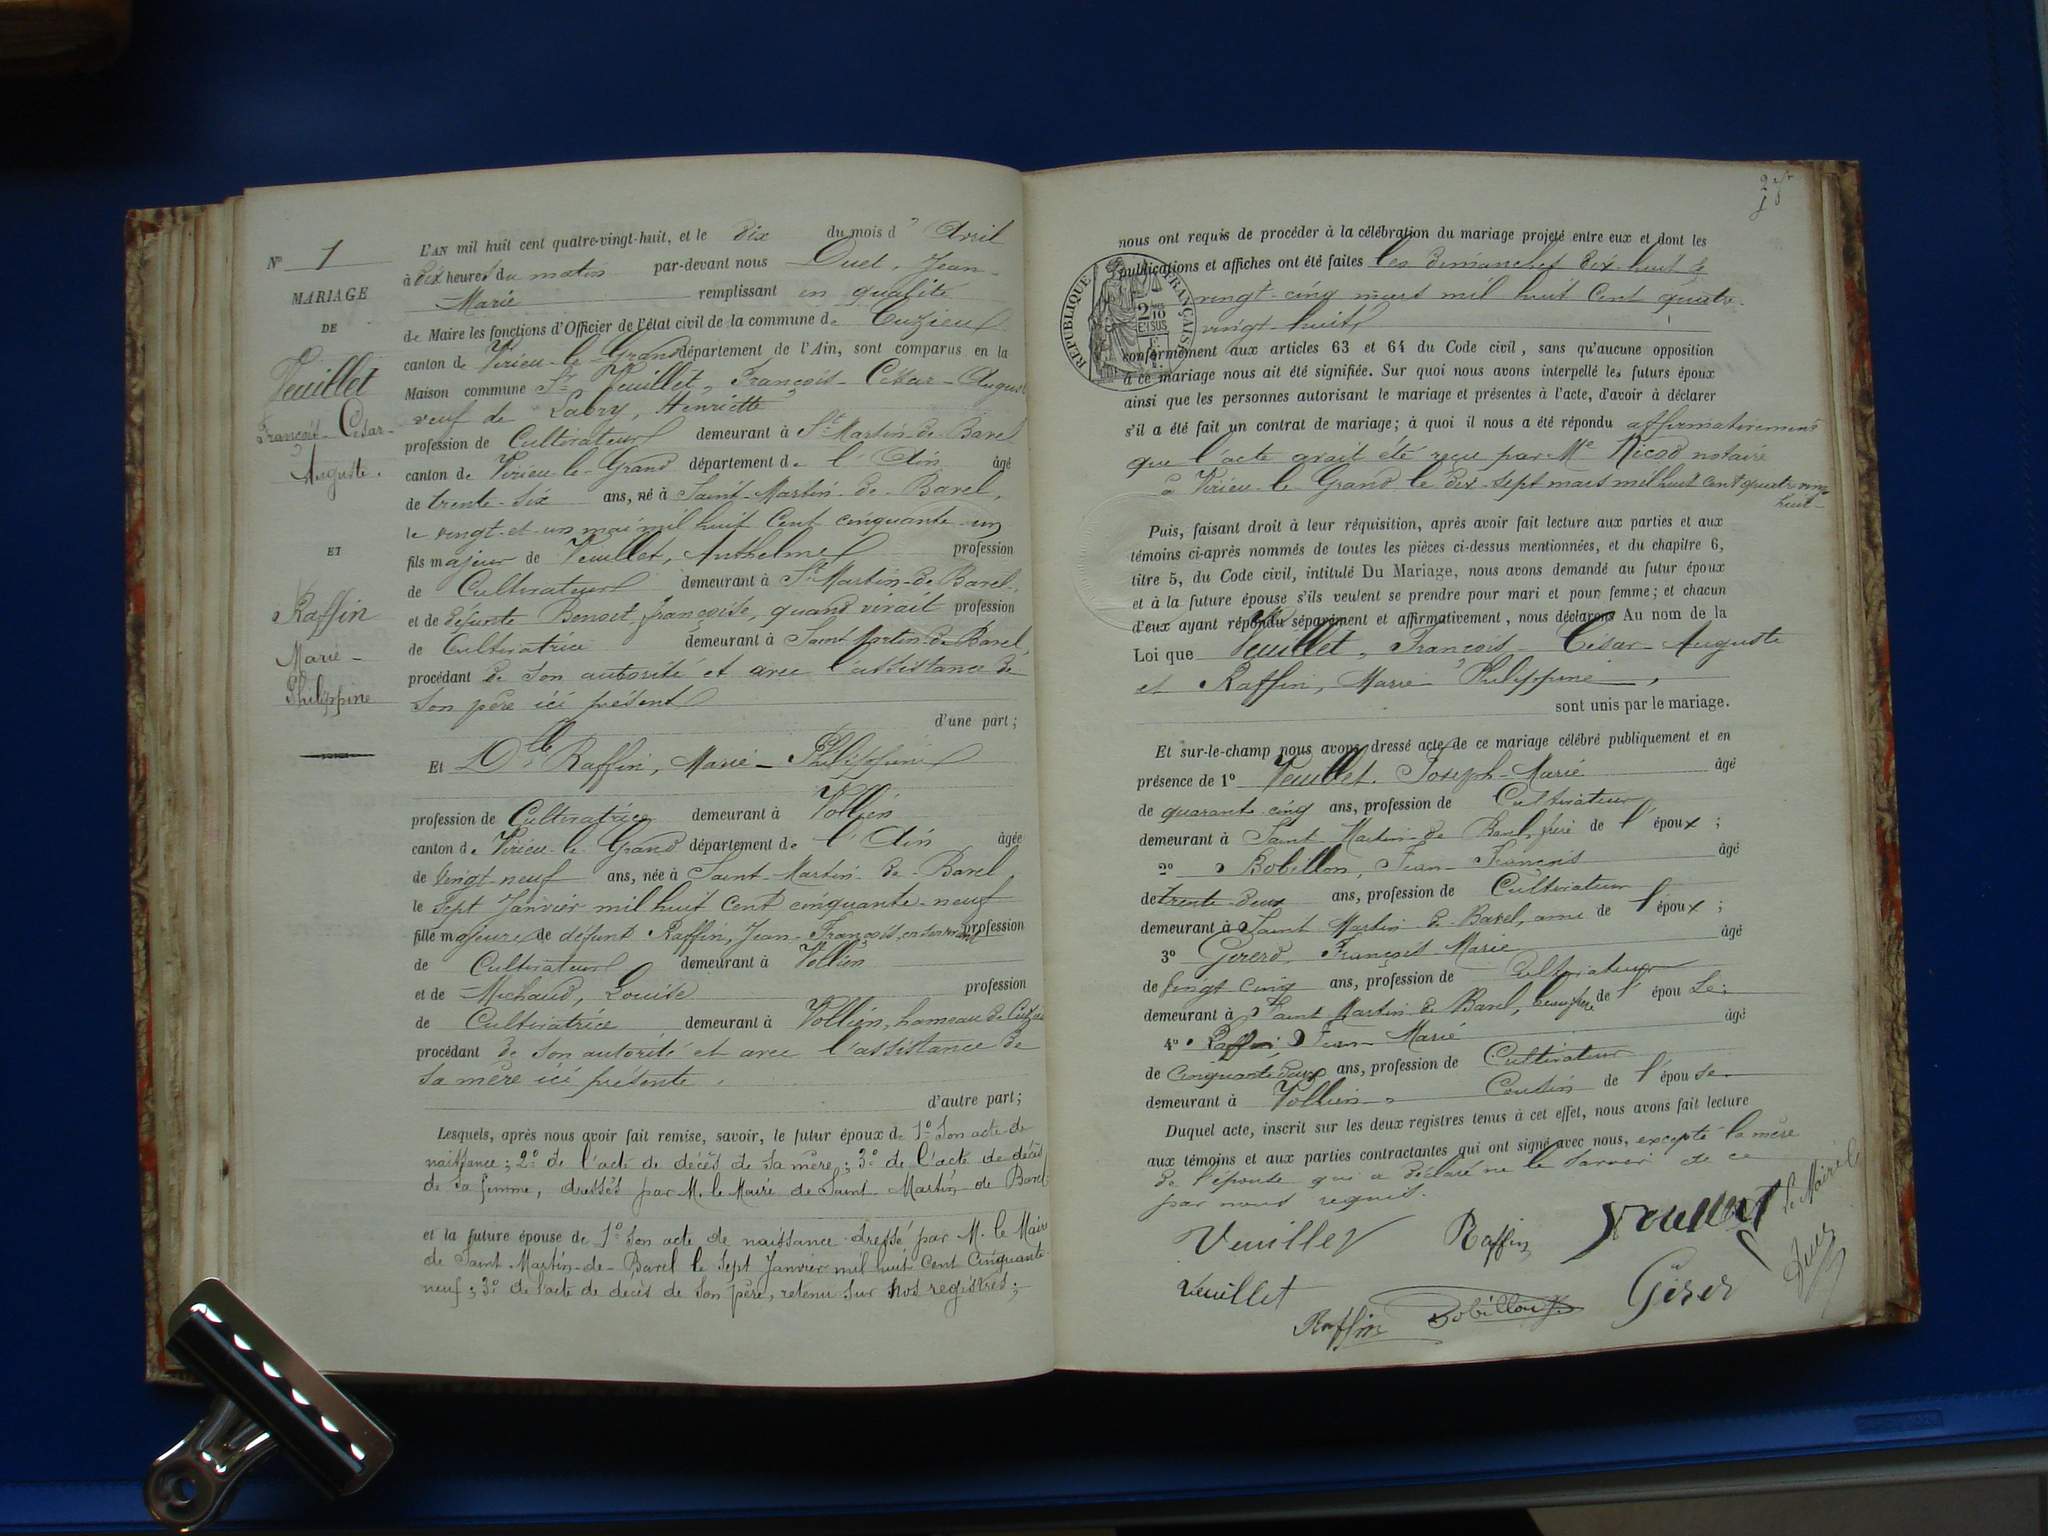 N° 1
MARIAGE
DE
Veuillet
François-César-
Auguste.
ET
Raffin
Marie-
Philippine
L'AN mil huit cent quatre-vingt-huit, et le dix du mois d'Avril
à dix heures du matin par-devant nous Duel, Jean-
Marie remplissant en qualité
de Maire les fonctions d'Officier de l'état civil de la commune de Cuzieu
canton de Virieu-le-Grand département de l'Ain, sont comparus en la
Maison commune Sr Veuillet, François-César-Auguste
veuf de Labry, Henriette
profession de Cultivateur demeurant à St Martin-de-Bavel
canton de Virieu-le-Grand département de l'Ain âgé
de trente-six ans, né à Saint-Martin-de-Bavel,
le vingt-et-un mai mil huit cent cinquante-un
fils majeur de Veuillet, Anthelme profession
de Cultivateur demeurant à St Martin-de-Bavel,
et de défunte Benoet, françoise, quand vivait profession
de Cultivatrice demeurant à Saint Martin-de-Bavel,
procédant de son autorité et avec l'assistance de
son père ici présent
d'une part;
Et Dlle Raffin, Marie-Philippine
profession de Cultivatrice demeurant à Vollien
canton de Virieu-le-Grand département de l'Ain âgée
de vingt-neuf ans, née à Saint-Martin-de-Bavel
le sept Janvier mil huit cent cinquante-neuf
fille majeure de défunt Raffin, Jean-François, en son vivant profession
de Cultivateur demeurant à Vollien
et de Michaud, Louise profession
de Cultivatrice demeurant à Vollien, hameau de Cuzieu
procédant de son autorité et avec l'assistance de
sa mère ici présente.
d'autre part;
Lesquels, après nous avoir fait remise, savoir, le futur époux de 1° son acte de
naissance; 2° de l'acte de décès de sa mère; 3° de l'acte de décès
de sa femme, dressés par M. le Maire de Saint-Martin-de Bavel
et la future épouse de 1° son acte de naissance dressé par M. le Maire
de Saint-Martin-de-Bavel le sept Janvier mil huit cent cinquante
neuf; 3° de l'acte de décès de son père, retenu sur nos registres;
nous ont requis de procéder à la célébration du mariage projeté entre eux et dont les
publications et affiches ont été faites les dimanches dix-huit &
vingt-cinq mars mil huit cent quatre-
vingt-huit
RÉPUBLIQUE FRANÇAISE
2/10 EN SUS
conformément aux articles 63 et 64 du Code civil, sans qu'aucune opposition
à ce mariage nous ait été signifiée. Sur quoi nous avons interpellé les futurs époux
ainsi que les personnes autorisant le mariage et présentes à l'acte, d'avoir à déclarer
s'il a été fait un contrat de mariage; à quoi il nous a été répondu affirmativement
que l'acte avait été reçu par Me Nicod notaire
à Virieu-le-Grand le dix-sept mars mil huit cent quatre vingt
huit-
Puis, faisant droit à leur réquisition, après avoir fait lecture aux parties et aux
témoins ci-après nommés de toutes les pièces ci-dessus mentionnées, et du chapitre 6,
titre 5, du Code civil, intitulé Du Mariage, nous avons demandé au futur époux
et à la future épouse s'ils veulent se prendre pour mari et pour femme; et chacun
d'eux ayant répondu séparément et affirmativement, nous déclarons Au nom de la
Loi que Veuillet, François-César-Auguste
et Raffin, Marie Philippine,
sont unis par le mariage.
Et sur-le-champ nous avons dressé acte de ce mariage célébré publiquement et en
présence de 1° Veuillet, Joseph-Marie âgé
de quarante-cinq ans, profession de Cultivateur
demeurant à Saint-Martin-de-Bavel, frère de l'époux;
2° Bobillon, Jean-François âgé
de trente-deux ans, profession de Cultivateur
demeurant à Saint Martin-de-Bavel, ami de l'époux;
3° Gererd, François-Marie âgé
de vingt cinq ans, profession de Cultivateur
demeurant à Saint Martin de Bavel, beau frère de l'épouse;
4° Raffin, Jean-Marie âgé
de Cinquante deux ans, profession de Cultivateur
demeurant à Vollien Cousin de l'épouse.
Duquel acte, inscrit sur les deux registres tenus à cet effet, nous avons fait lecture
aux témoins et aux parties contractantes qui ont signé avec nous, excepté la mère
de l'épouse qui a déclaré ne le savoir de ce
par nous requis.
Veuillet Raffin Veuillet Le Maire
Veuillet Raffin Bobillon Gérer Duel